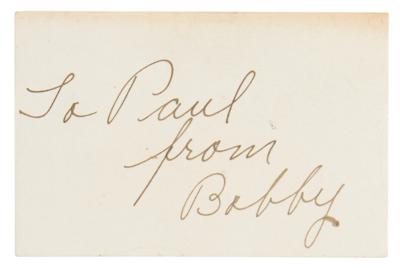 To Paul
from
Bobby